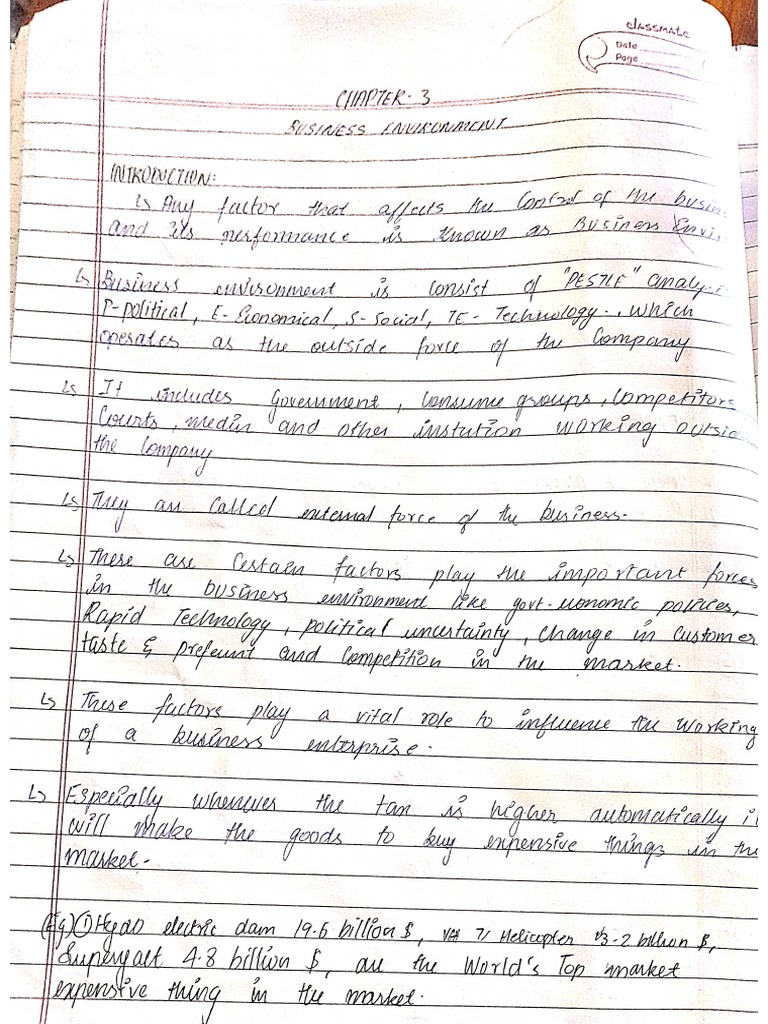 classmate
Date
Page
CHAPTER-3
BUSINESS ENVIRONMENT
INTRODUCTION:
↳ Any factor that affects the Control of the busin
and its performance is known as Business Envir
↳ Business environment is consist of "PESTLE" analy
P-political, E-Economical, S-Social, TE-Technology., which
operates as the outside force of the Company
↳ It includes Government, consume groups, Competitors
Courts, media and other instution working outsid
the Company
↳ They are called external force of the business.
↳ These are Certain factors play the important forces
in the business environment like govt-economic policies,
Rapid Technology, political uncertainty, change in customer
taste & prefeunt and Competition in the market.
↳ These factors play a vital role to influence the working
of a business enterprise.
↳ Especially whenever the tax is higher automatically i
will make the goods to buy expensive things in the
market.
(Eg) ① Hydo electric dam 19.6 billion $, Helicopter 3-2 billion $,
Superyatt 4.8 billion $, are the World's Top market
expensive thing in the market.